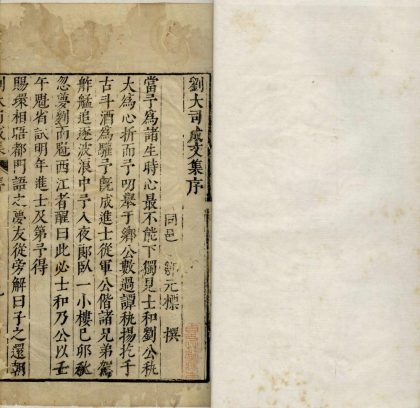 劉大司成文集序
同邑 鄒元標 撰
當予爲諸生時心最不能下獨見士和劉公秇
大爲心折而予叨舉于鄉公數過譚秇揚扢千
古斗酒爲驩予旣成進士從軍公偕諸兄弟駕
舴艋追逐波浪中予入夜郞臥一小樓巳卯秋
忽夢劉而魁西江者醒曰此必士和乃公以壬
午魁省試明年進士及第予得
賜環相晤都門語之夢友從旁解曰子之還朝
劉大司成集 序